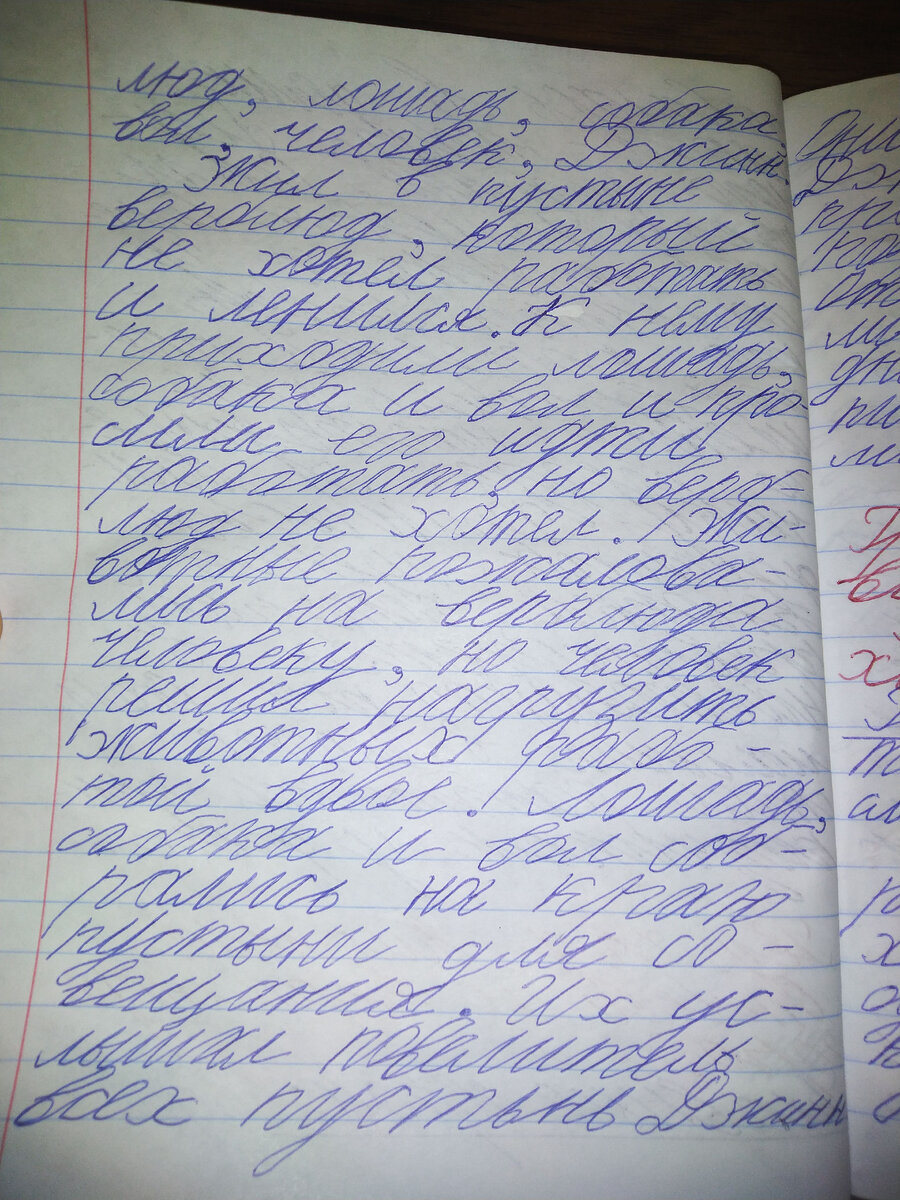 люд, лошадь, собака,
вол, человек, Джинн.
Жил в пустыне
верблюд, который
не хотел работать
и ленился. К нему
приходили лошадь,
собака и вол и про-
сили его идти
работать, но верб-
люд не хотел. Жи-
вотные пожалова-
лись на верблюда
человеку, но человек
решил нагрузить
животных рабо-
той вдвое. Лошадь,
собака и вол соб-
рались на краю
пустыни для со-
вещания. Их ус-
лышал повелитель
всех пустынь Джинн